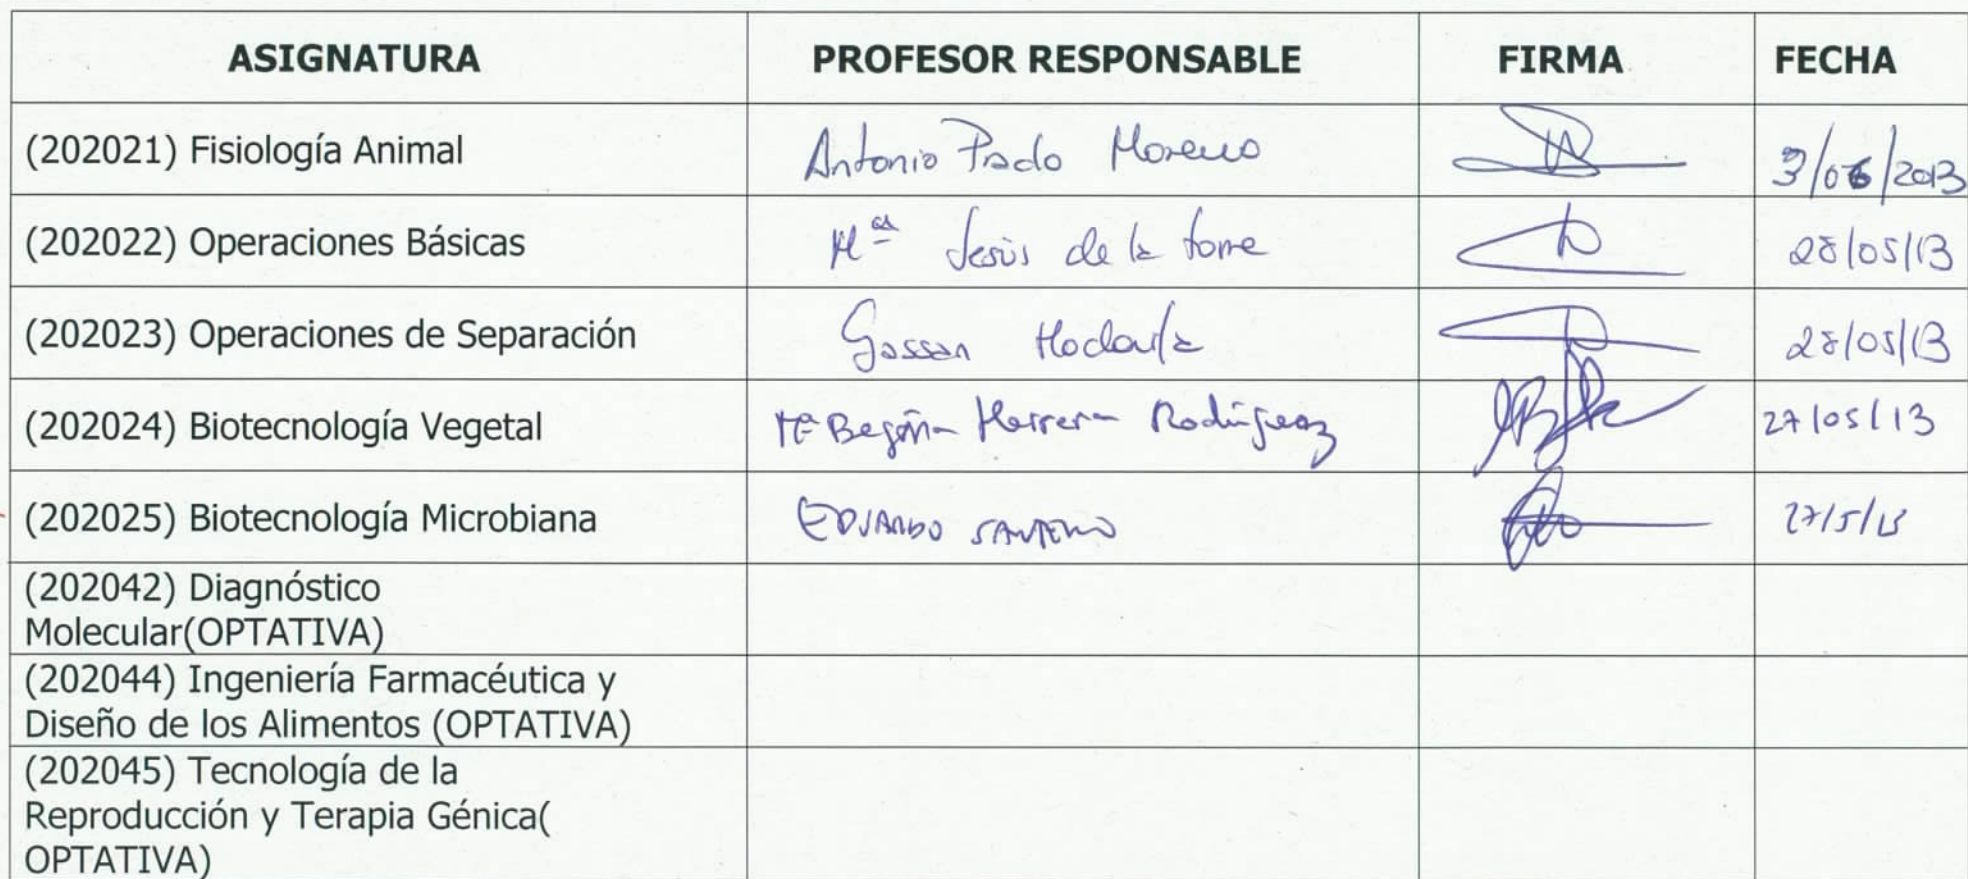 ASIGNATURA PROFESOR RESPONSABLE FIRMA FECHA
(202021) Fisiología Animal Antonio Prado Moreno 3/06/2013
(202022) Operaciones Básicas Mª Jesús de la Torre 28/05/13
(202023) Operaciones de Separación Gassan Hodaifa 28/05/13
(202024) Biotecnología Vegetal Mª Begoña Herrera Rodríguez 27/05/13
(202025) Biotecnología Microbiana EDUARDO SANTERO 27/5/13
(202042) Diagnóstico
Molecular(OPTATIVA)
(202044) Ingeniería Farmacéutica y
Diseño de los Alimentos (OPTATIVA)
(202045) Tecnología de la
Reproducción y Terapia Génica(
OPTATIVA)